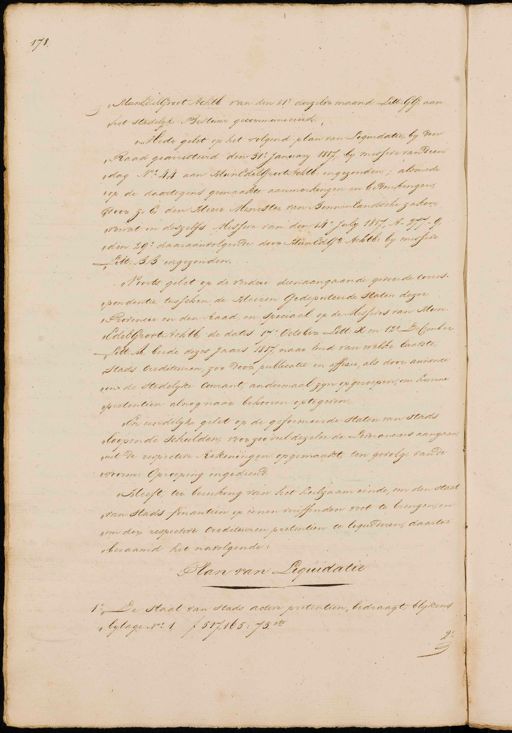 171.
HunEdelGroot Achtb. van den 21e dezer maand Litt. aan
het Stedelijk Bestuur gecommuniceerd,
Mede gelet op het volgend plan van Liquidatie, by den
Raad gearresteerd den 31e January 1817, by missive van dien
dag No. 44 aan HunEdelGrootAchtb. ingezonden; alsmede
op de daartegens gemaakte aanmerkingen en bedenkingen
door Z. E. den Heere Minister van Binnenlandsche Zaken,
vervat in deszelfs Missive van den 14e July 1817,
den 29e daaraanvolgende door HunEdGr. Achtb. by missive
Litt. ingezonden.
Voorts gelet op de verdere dienaangaande gevoerde corres-
pondentie tusschen de Heeren Gedeputeerde Staten dezer
Provincie en den Raad en speciaal op de Missives van Hun
EdelGrootAchtb. de datis 17e October Litt. en 12e December
Litt. A beide dezes jaars 1817, naar luid van welke laatste,
Stads Crediteuren, zoo door publicatie en affixie, als door annonce
in de Stedelyke Courant, andermaal zyn opgeroepen, om hunne
pretentien alnog naar behooren optegeven.
En eindelyk gelet op de geformeerde Staten van Stads
loopende Schulden, voor zoo veel dezelve de Leveranciers aangaan,
uit de respective Rekeningen opgemaakt, ten gevolge van de
voorm. Oproeping ingediend.
Heeft, ter bereiking van het heilzaam einde, om den staat
van Stads financien op eenen vereffenden voet te brengen, en
om der respective Crediteuren pretentien te liquideren, daartoe
beraamd het navolgende:
Plan van Liquidatie
1e. De Staat van Stads actieve pretentien, bedraagt blykens
bylage No. 1 f 517,165:75
2e